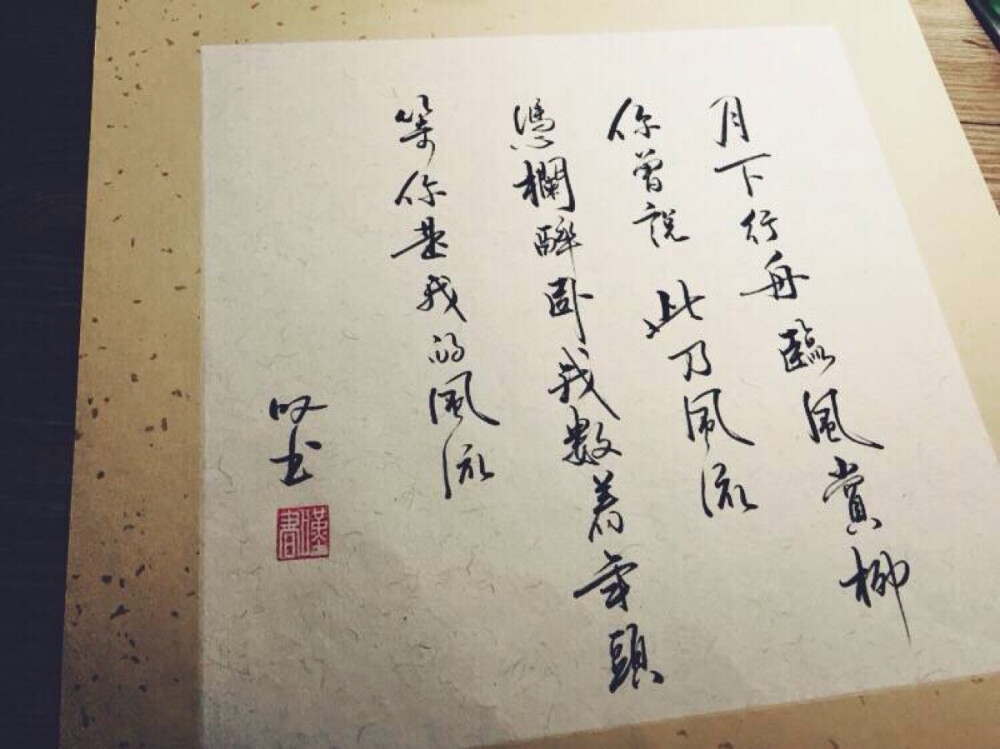 月下行舟臨風賞柳
你曾說 此乃風流
憑欄醉卧我數着年頭
等你是我的風流
叹书
漢書